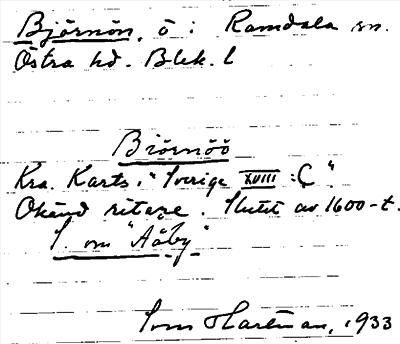 Björnön, ö i Ramdala sn.
Östra hd. Blek. l
Biörnöö
Kra. Kartv. "Sverige XVIII:C".
Okänd ritare. Slutet av 1600-t.
S. om "Aäby"
Sven Hartman, 1933